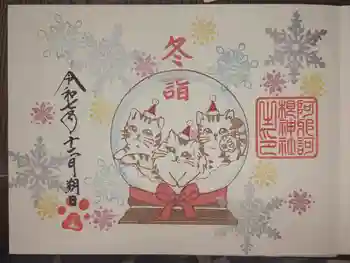 冬詣
阿那訶
根神社
之印
令和七年十二月朔日